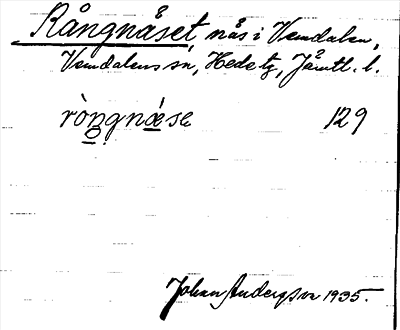 Rångnåset, nås i Vemdalen,
Vemdalens sn, Hede tg, Jämtl. l.
ròngnǽse 129
Johan Anderson 1935.